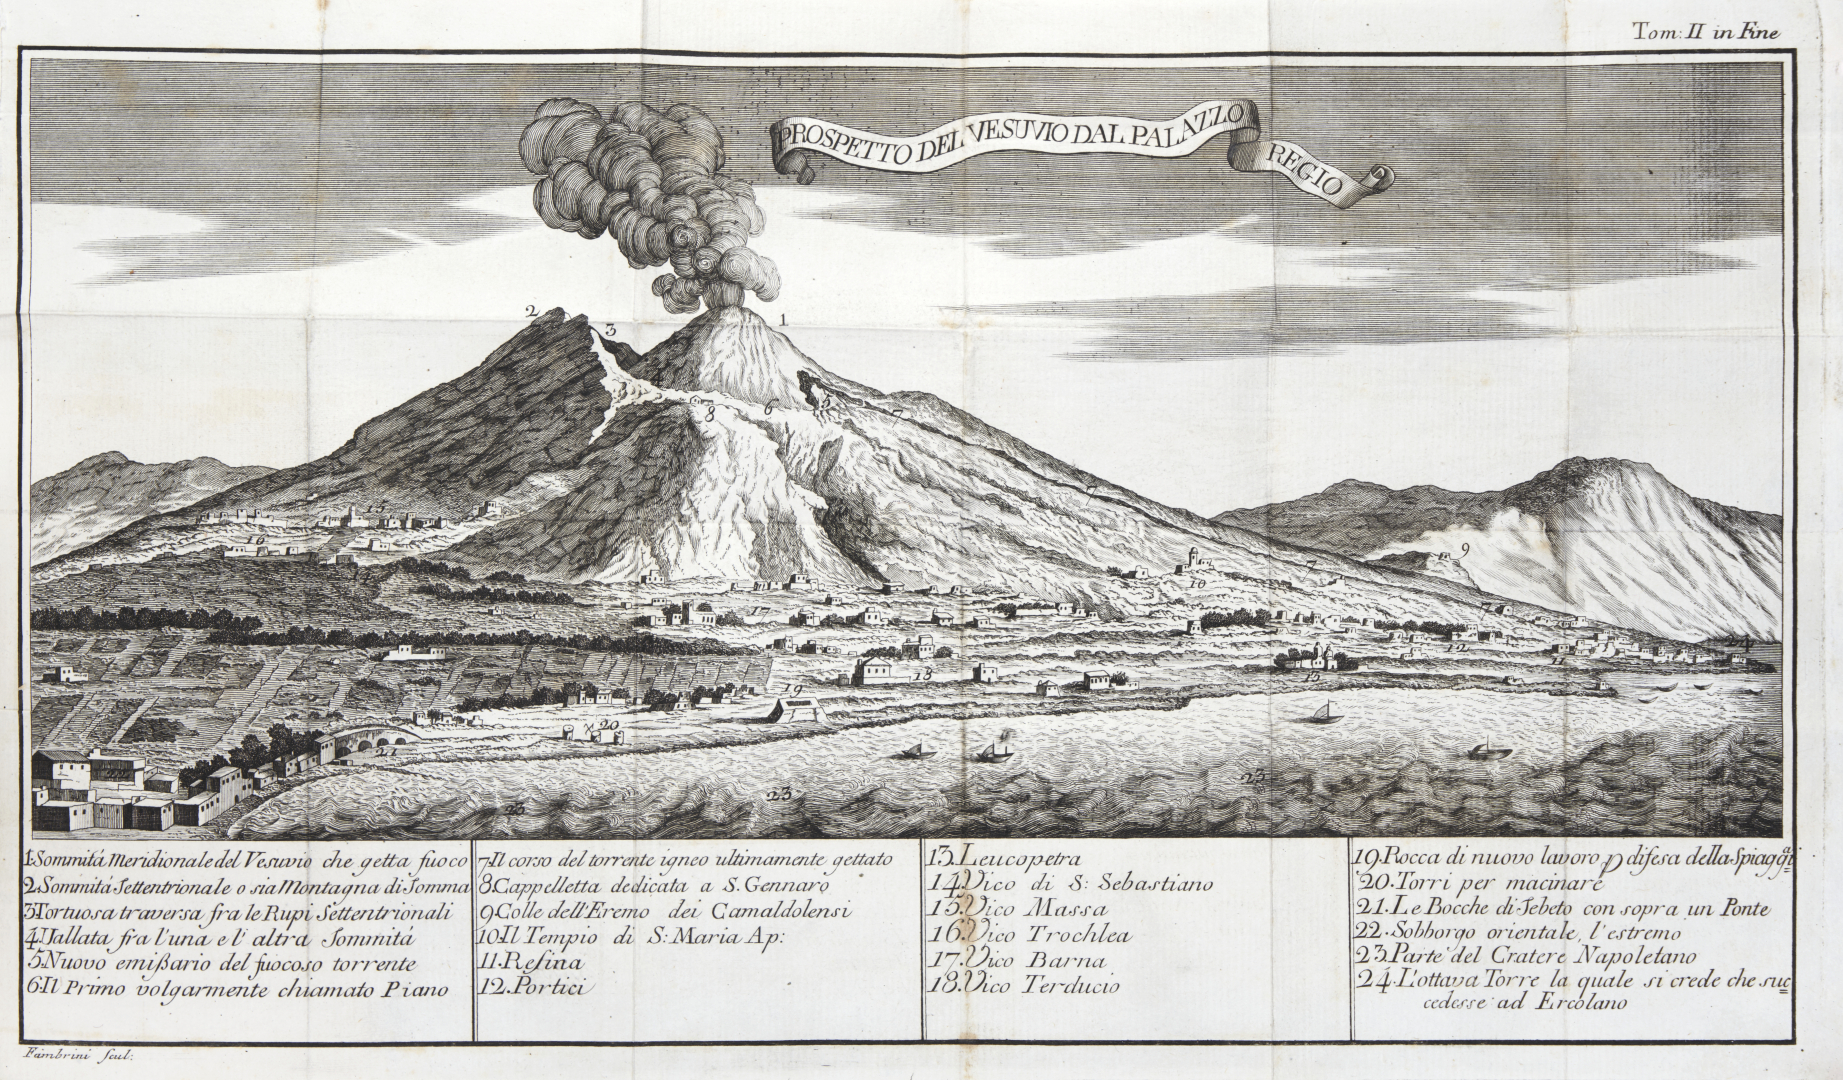 Tom: II in Fine
PROSPETTO DEL VESUVIO DAL PALAZZO REGIO
2
3
1
8
6
5
7
7
15
16
14
9
10
7
17
7
12
11
24
18
13
19
20
21
23
23
23
1.Sommitá Meridionale del Vesuvio che getta fuoco
2.Sommitá Settentrionale o sia Montagna di Somma
3.Tortuosa traversa fra le Rupi Settentrionali
4.Vallata fra l'una e l' altra Sommitá
5.Nuovo emißario del fuocoso torrente
6.Il Primo volgarmente chiamato Piano
7.Il corso del torrente igneo ultimamente gettato
8.Cappelletta dedicata a S. Gennaro
9.Colle dell'Eremo dei Camaldolensi
10.Il Tempio di S: Maria Ap:
11.Resina
12.Portici
13.Leucopetra
14.Vico di S: Sebastiano
15.Vico Massa
16.Vico Trochlea
17.Vico Barna
18.Vico Terducio
19.Rocca di nuovo lavoro p difesa della Spiaggia
20.Torri per macinare
21.Le Bocche di Sebeto con sopra un Ponte
22.Sobborgo orientale, l'estremo
23.Parte del Cratere Napoletano
24.L'ottava Torre la quale si crede che suc=
cedesse ad Ercolano
Fambrini Scul: